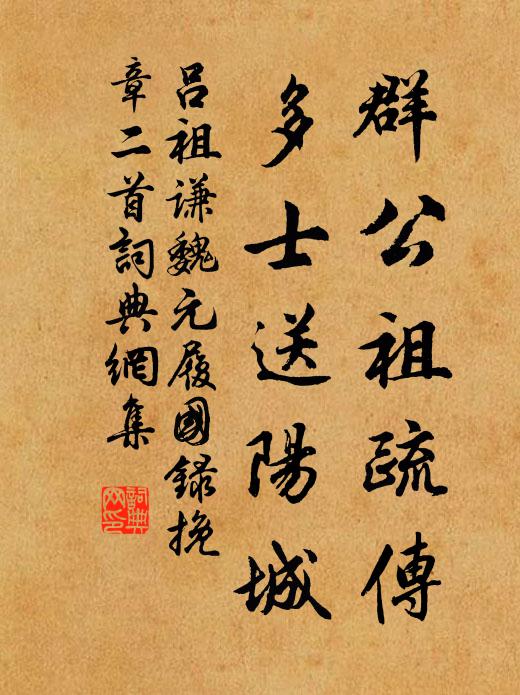 群公祖疏傅
多士送陽城
呂祖謙魏元履國錄挽
章二首詞典網集
詞典网印